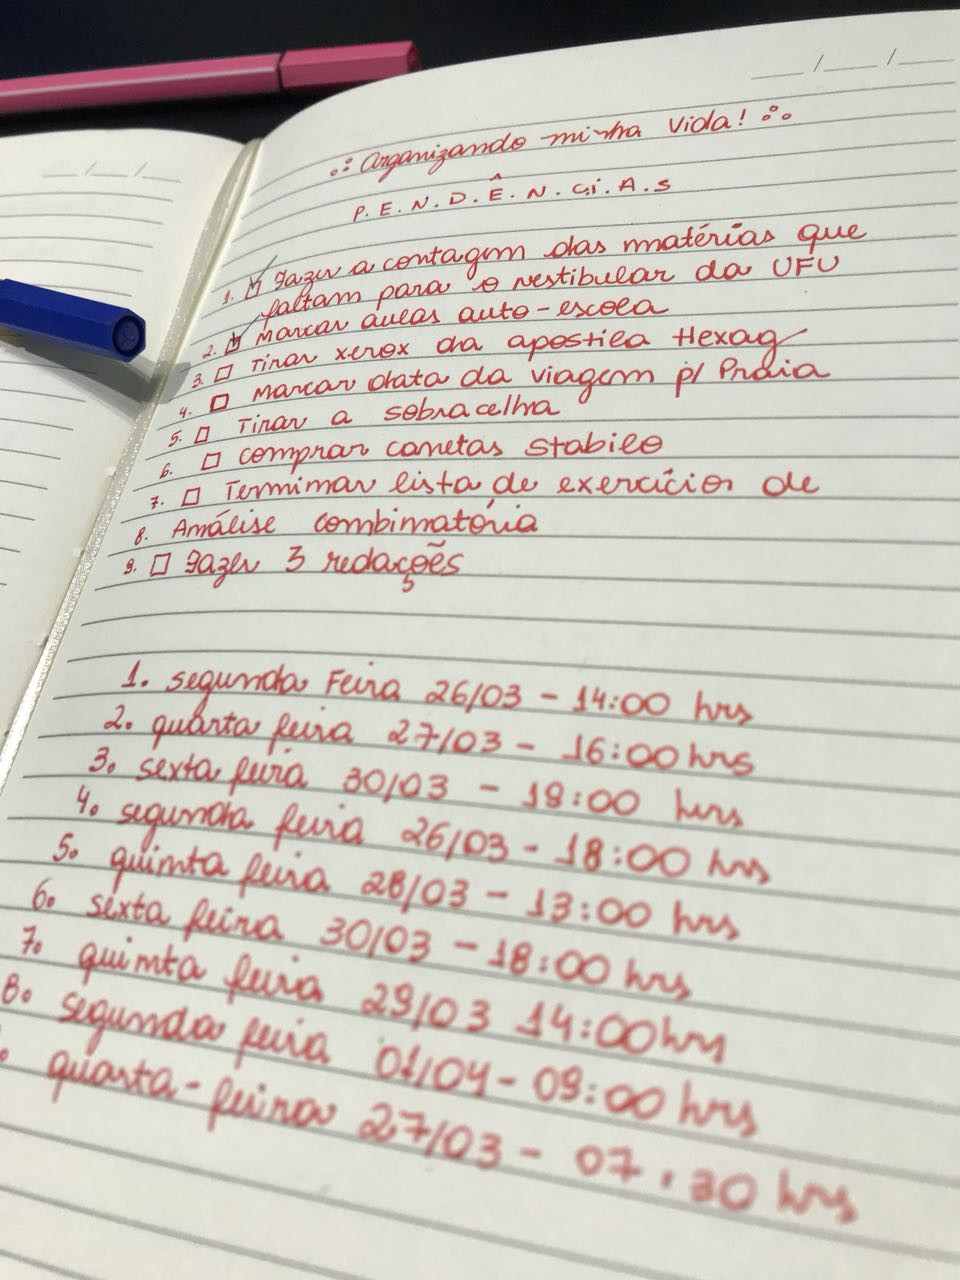 Organizando minha vida!
P.E.N.D.Ê.N.C.i.A.S
1. Fazer a contagem das matérias que
faltam para o vestibular da UFU
2. Marcar aulas auto-escola
3. Tirar xerox da apostila Hexag
4. Marcar data da viagem p/ Praia
5. Tirar a sobracelha
6. Comprar canetas stabilo
7. Terminar lista de exercícios de
8. Análise combinatória
9. Fazer 3 redações
1. segunda Feira 26/03 - 14:00 hrs
2. quarta feira 27/03 - 16:00 hrs
3. sexta feira 30/03 - 19:00 hrs
4. segunda feira 26/03 - 18:00 hrs
5. quinta feira 28/03 - 13:00 hrs
6. sexta feira 30/03 - 18:00 hrs
7. quinta feira 29/03 14:00 hrs
8. segunda feira 01/04 - 09:00 hrs
quarta-feira 27/03 - 07:30 hrs